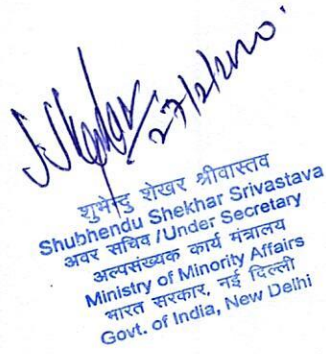 27/2/2020
शुभेन्दु शेखर श्रीवास्तव
Shubhendu Shekhar Srivastava
अवर सचिव /Under Secretary
अल्पसंख्यक कार्य मंत्रालय
Ministry of Minority Affairs
भारत सरकार, नई दिल्ली
Govt. of India, New Delhi